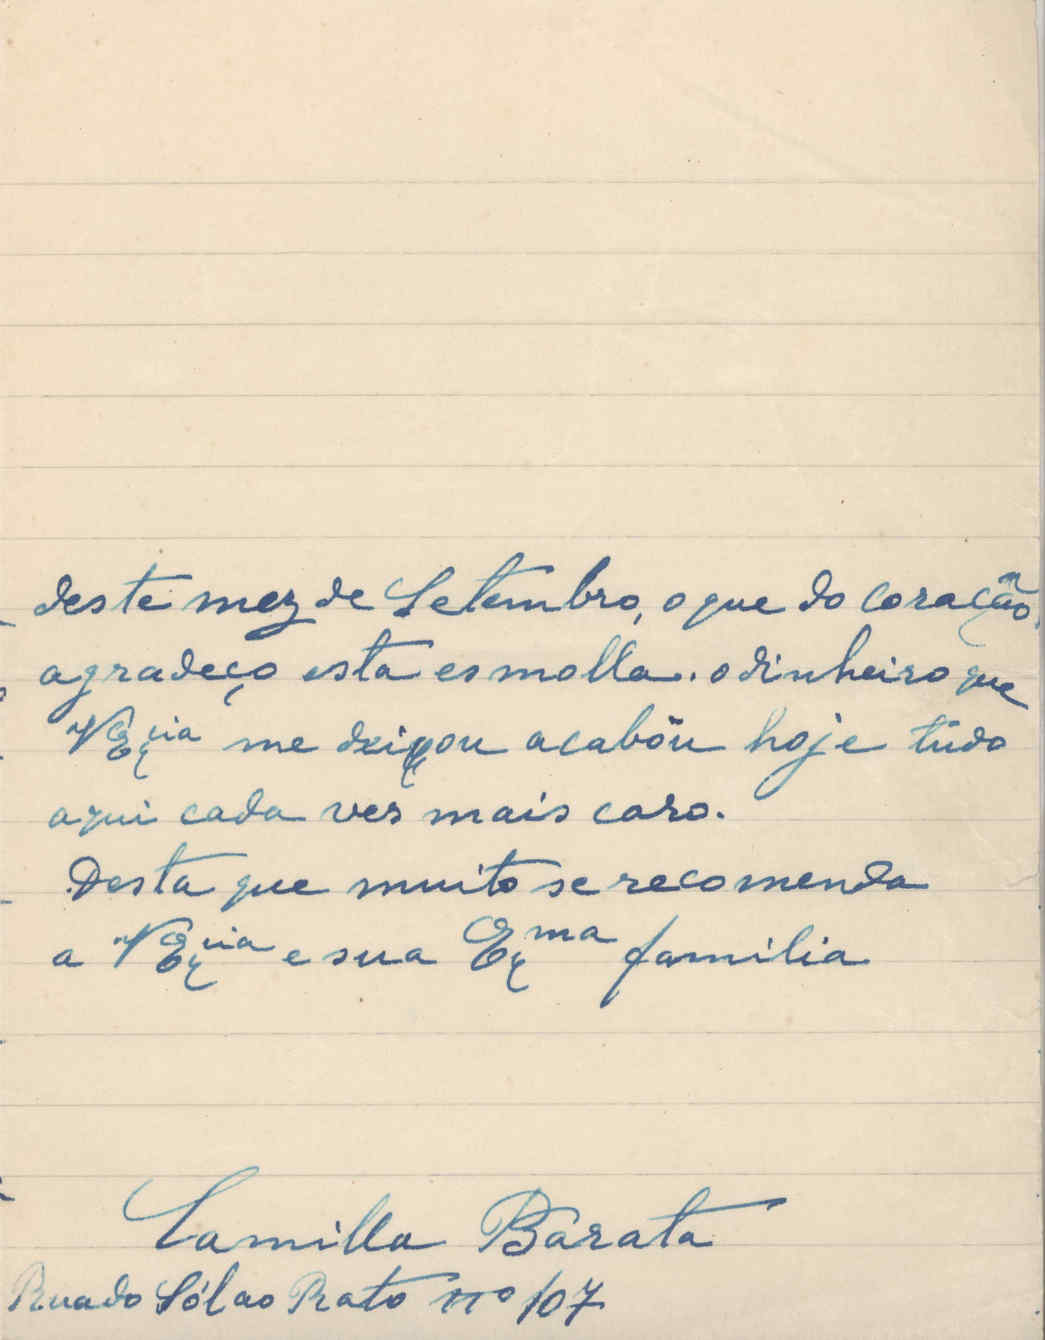 deste mez de Setembro, o que do coração,
agradeço esta esmolla. o dinheiro que
V Excia me deixou acabou hoje tudo
aqui cada ves mais caro.
Desta que muito se recomenda
a V Excia e sua Exma familia
Camilla Barata
Rua do Sól ao Rato nº 107